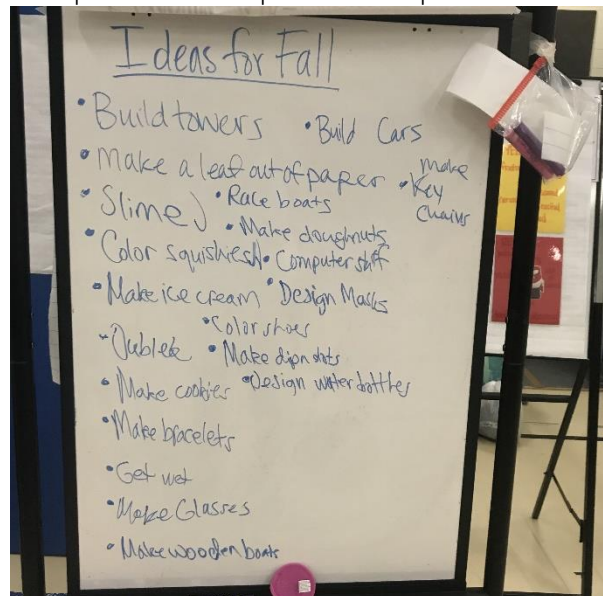 Ideas for Fall
• Build towers • Build Cars
• Make a leaf out of paper • make Key Chains
• Slime • Race boats
• Make doughnuts
• Color squishies • Computer stuff
• Make ice cream • Design Masks
• Color shoes
• Oubleck • Make dipn dots
• Make cookies • Design water bottles
• Make bracelets
• Get wet
• Make Glasses
• Make wooden boats